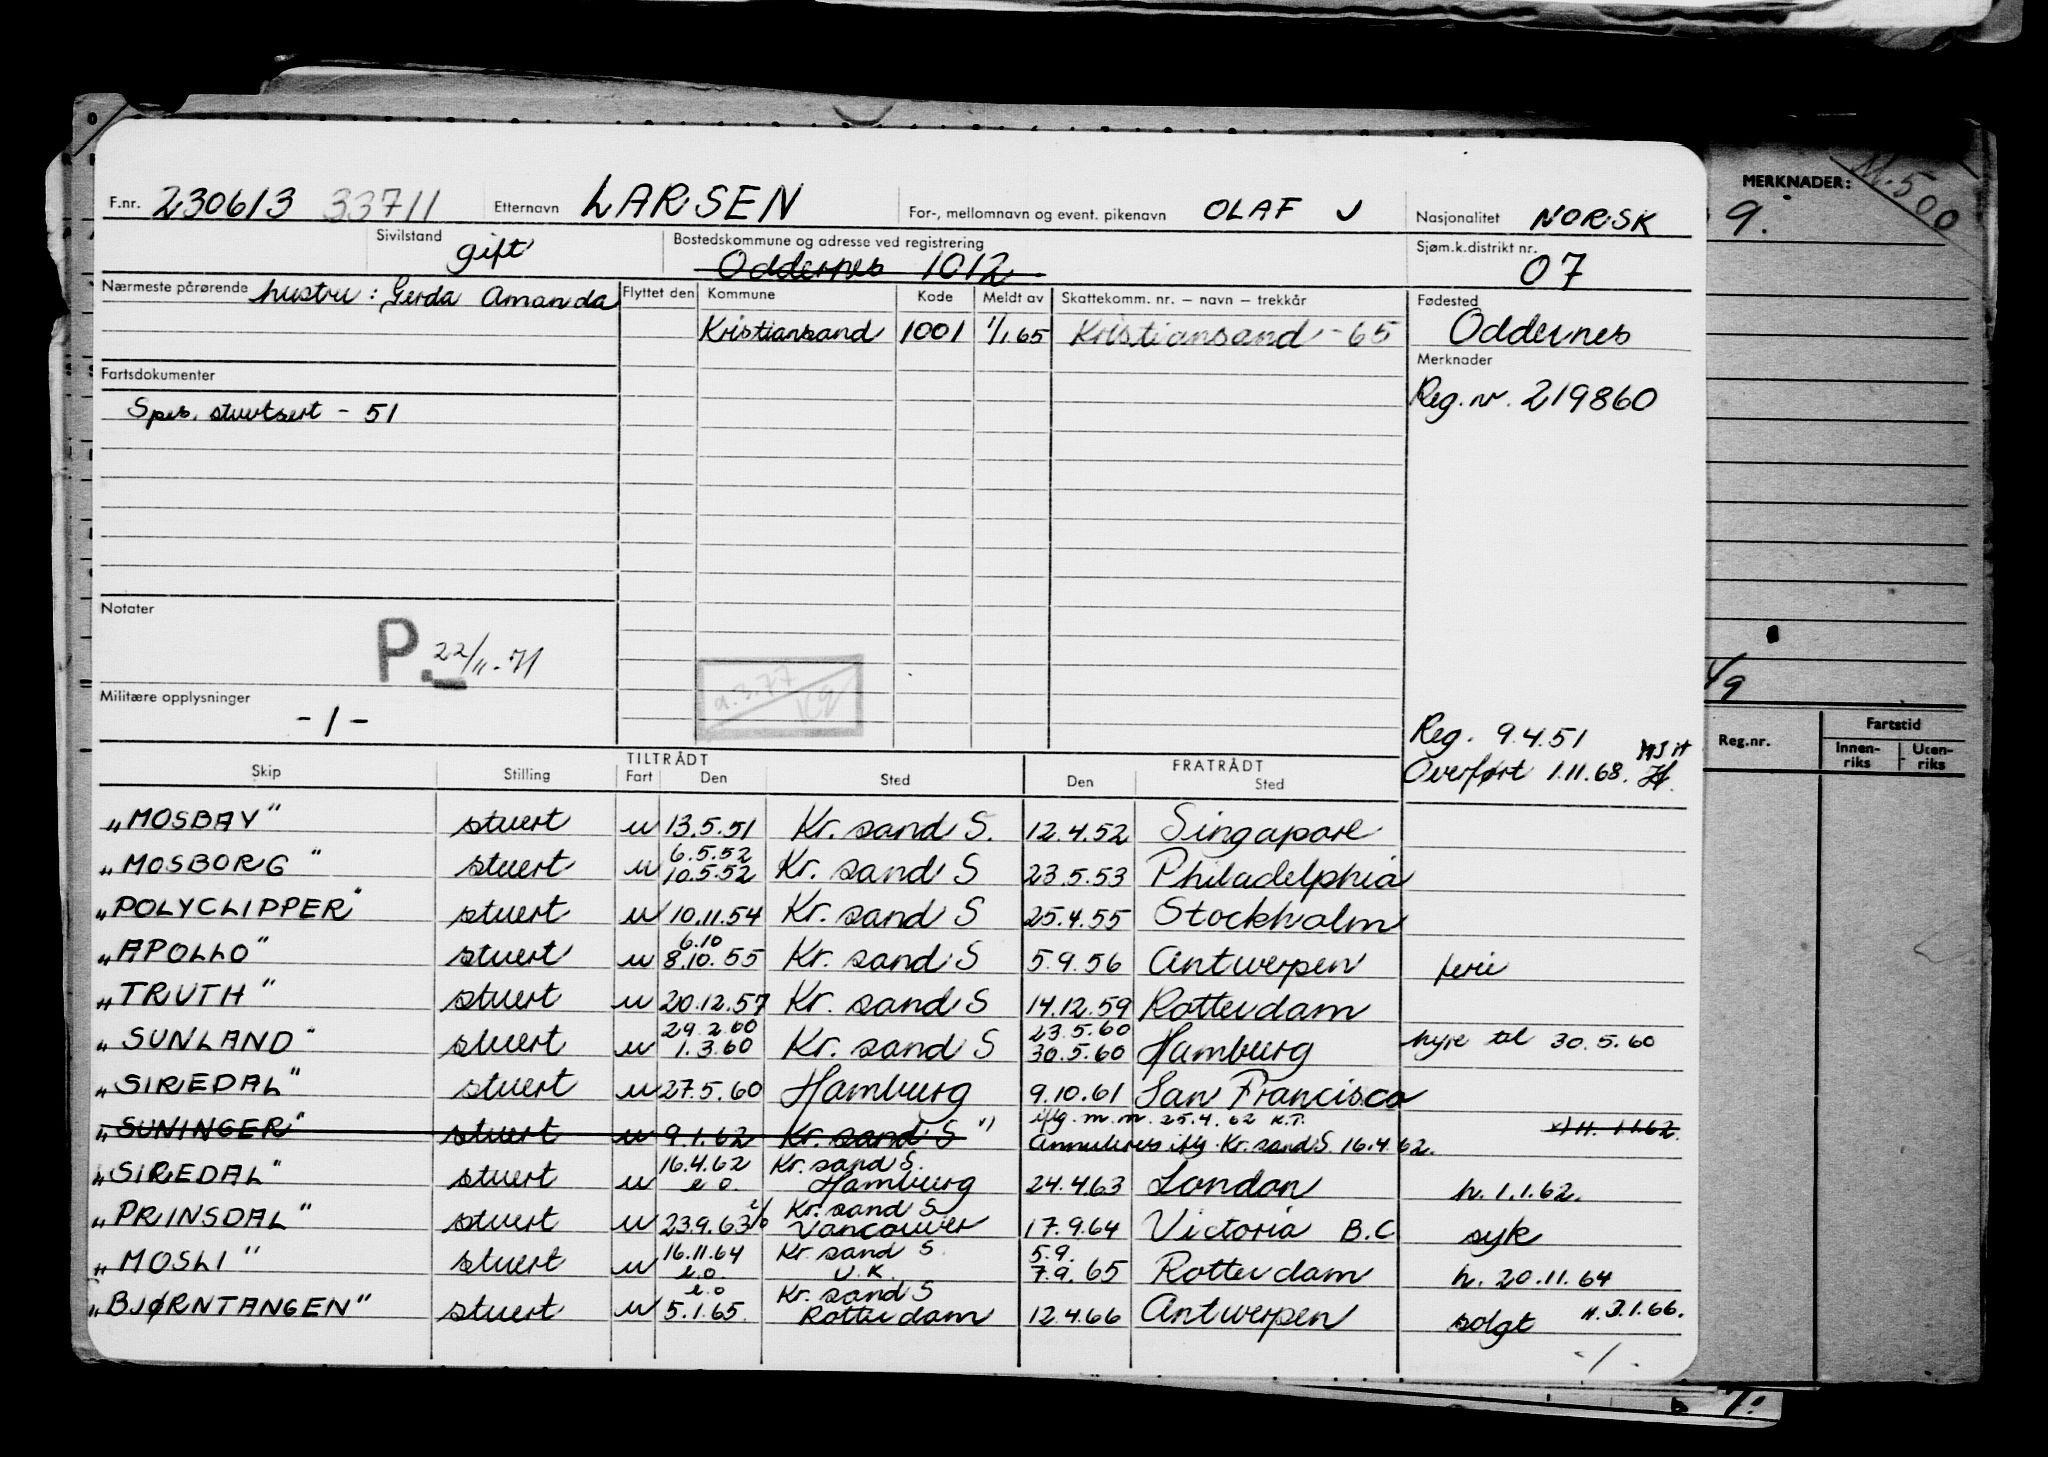 F.nr. 230613 33711 Etternavn LARSEN For-, mellomnavn og event. pikenavn OLAF J Nasjonalitet NORSK
Sivilstand gift Bostedskommune og adresse ved registrering Oddernes 1012 Sjøm.k.distrikt nr. 07
Nærmeste pårørende hustru: Gerda Amanda Flyttet den Kommune Kode Meldt av Skattekomm. nr. – navn – trekkår Fødested
Kristiansand 1001 1/1.65 Kristiansand - 65 Oddernes
Fartsdokumenter Merknader
Spes. stuertsert - 51 Reg. nr. 219860
Notater
P. 22/11-71
Militære opplysninger
- 1 -
Reg. 9.4.51
Overført 1.11.68.
TILTRÅDT FRATRÅDT
Skip Stilling Fart Den Sted Den Sted
"MOSBAY" stuert u 13.5.51 Kr. sand S. 12.4.52 Singapore
6.5.52
"MOSBORG" stuert u 10.5.52 Kr. sand S 23.5.53 Philadelphia
"POLYCLIPPER" stuert u 10.11.54 Kr. sand S 25.4.55 Stockholm
6.10
"APOLLO" stuert u 8.10.55 Kr. sand S 5.9.56 Antwerpen ferie
"TRUTH" stuert u 20.12.57 Kr. sand S 14.12.59 Rotterdam
29.2.60 23.5.60
"SUNLAND" stuert u 1.3.60 Kr. sand S 30.5.60 Hamburg hyre til 30.5.60
"SIREDAL" stuert u 27.5.60 Hamburg 9.10.61 San Francisco
iflg. m.m. 25.4.62 K.T.
"SUNINGER" stuert u 9.1.62 Kr. sand S Annulleres iflg. Kr. sand S. 16.4.62. H. 1.1.62.
16.4.62 Kr. sand S.
"SIREDAL" stuert u e.o. Hamburg 24.4.63 London h. 1.1.62.
Kr. sand S
"PRINSDAL" stuert u 23.9.63 Vancouver 17.9.64 Victoria B.C. syk
16.11.64 Kr. sand S. 5.9.
"MOSLI" stuert u e.o. U.K. 7.9.65 Rotterdam h. 20.11.64
e.o Kr. sand S
"BJØRNTANGEN" stuert u 5.1.65. Rotterdam 12.4.66 Antwerpen solgt H. 3.1.66.
- / -
MERKNADER:
9.
500
Reg.nr. Fartstid
Innen-riks Uten-riks